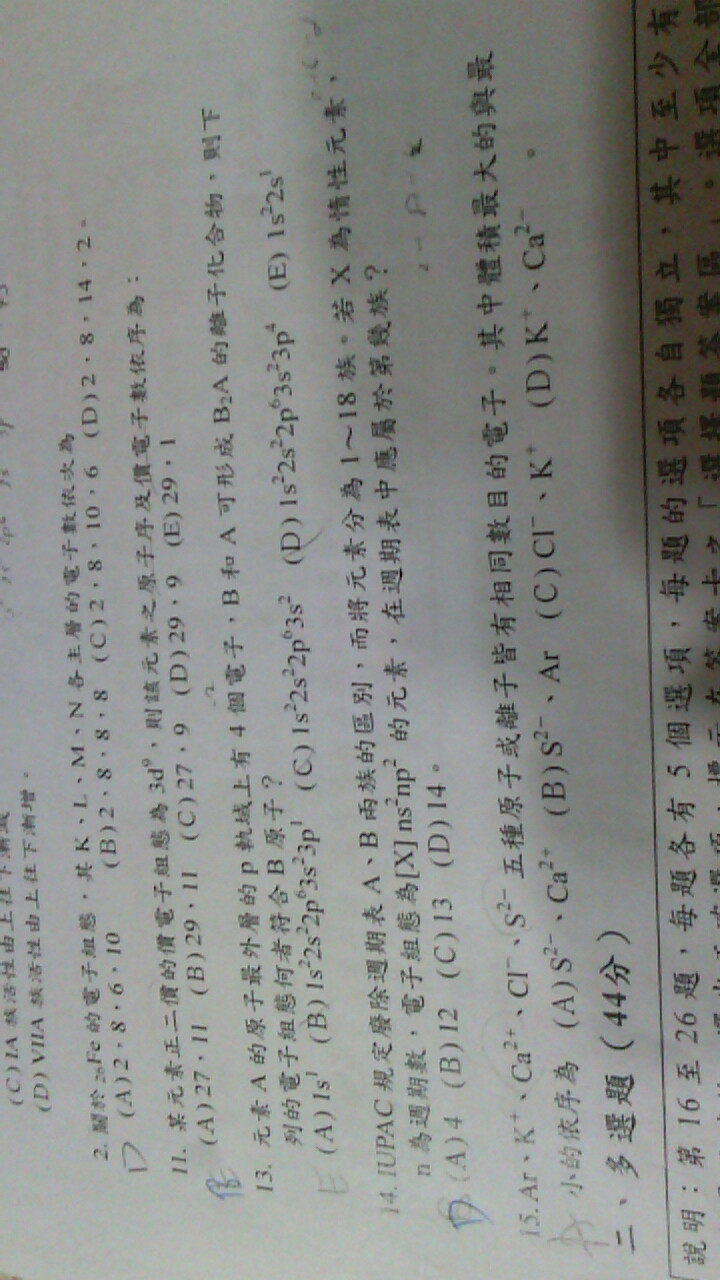 (C) IA 族活性由上往下漸減
(D) VIIA 族活性由上往下漸增。
2. 關於 ₂₆Fe 的電子組態，其 K、L、M、N 各主層的電子數依次為
(A) 2，8，6，10 (B) 2，8，8，8 (C) 2，8，10，6 (D) 2，8，14，2。
D
11. 某元素正二價的價電子組態為 3d⁹，則該元素之原子序及價電子數依序為：
(A) 27，11 (B) 29，11 (C) 27，9 (D) 29，9 (E) 29，1
13. 元素 A 的原子最外層的 p 軌域上有 4 個電子，B 和 A 可形成 B₂A 的離子化合物，則下
列的電子組態何者符合 B 原子？
(A) 1s¹ (B) 1s²2s²2p⁶3s²3p¹ (C) 1s²2s²2p⁶3s² (D) 1s²2s²2p⁶3s²3p⁴ (E) 1s²2s¹
E
14. IUPAC 規定廢除週期表 A、B 兩族的區別，而將元素分為 1～18 族。若 X 為惰性元素、
n 為週期數，電子組態為[X] ns²np² 的元素，在週期表中應屬於第幾族？
(A) 4 (B) 12 (C) 13 (D) 14。
D
15. Ar、K⁺、Ca²⁺、Cl⁻、S²⁻ 五種原子或離子皆有相同數目的電子。其中體積最大的與最
小的依序為 (A) S²⁻、Ca²⁺ (B) S²⁻、Ar (C) Cl⁻、K⁺ (D) K⁺、Ca²⁻ 。
A
二、多選題（44分）
說明：第 16 至 26 題，每題各有 5 個選項，每題的選項各自獨立，其中至少有